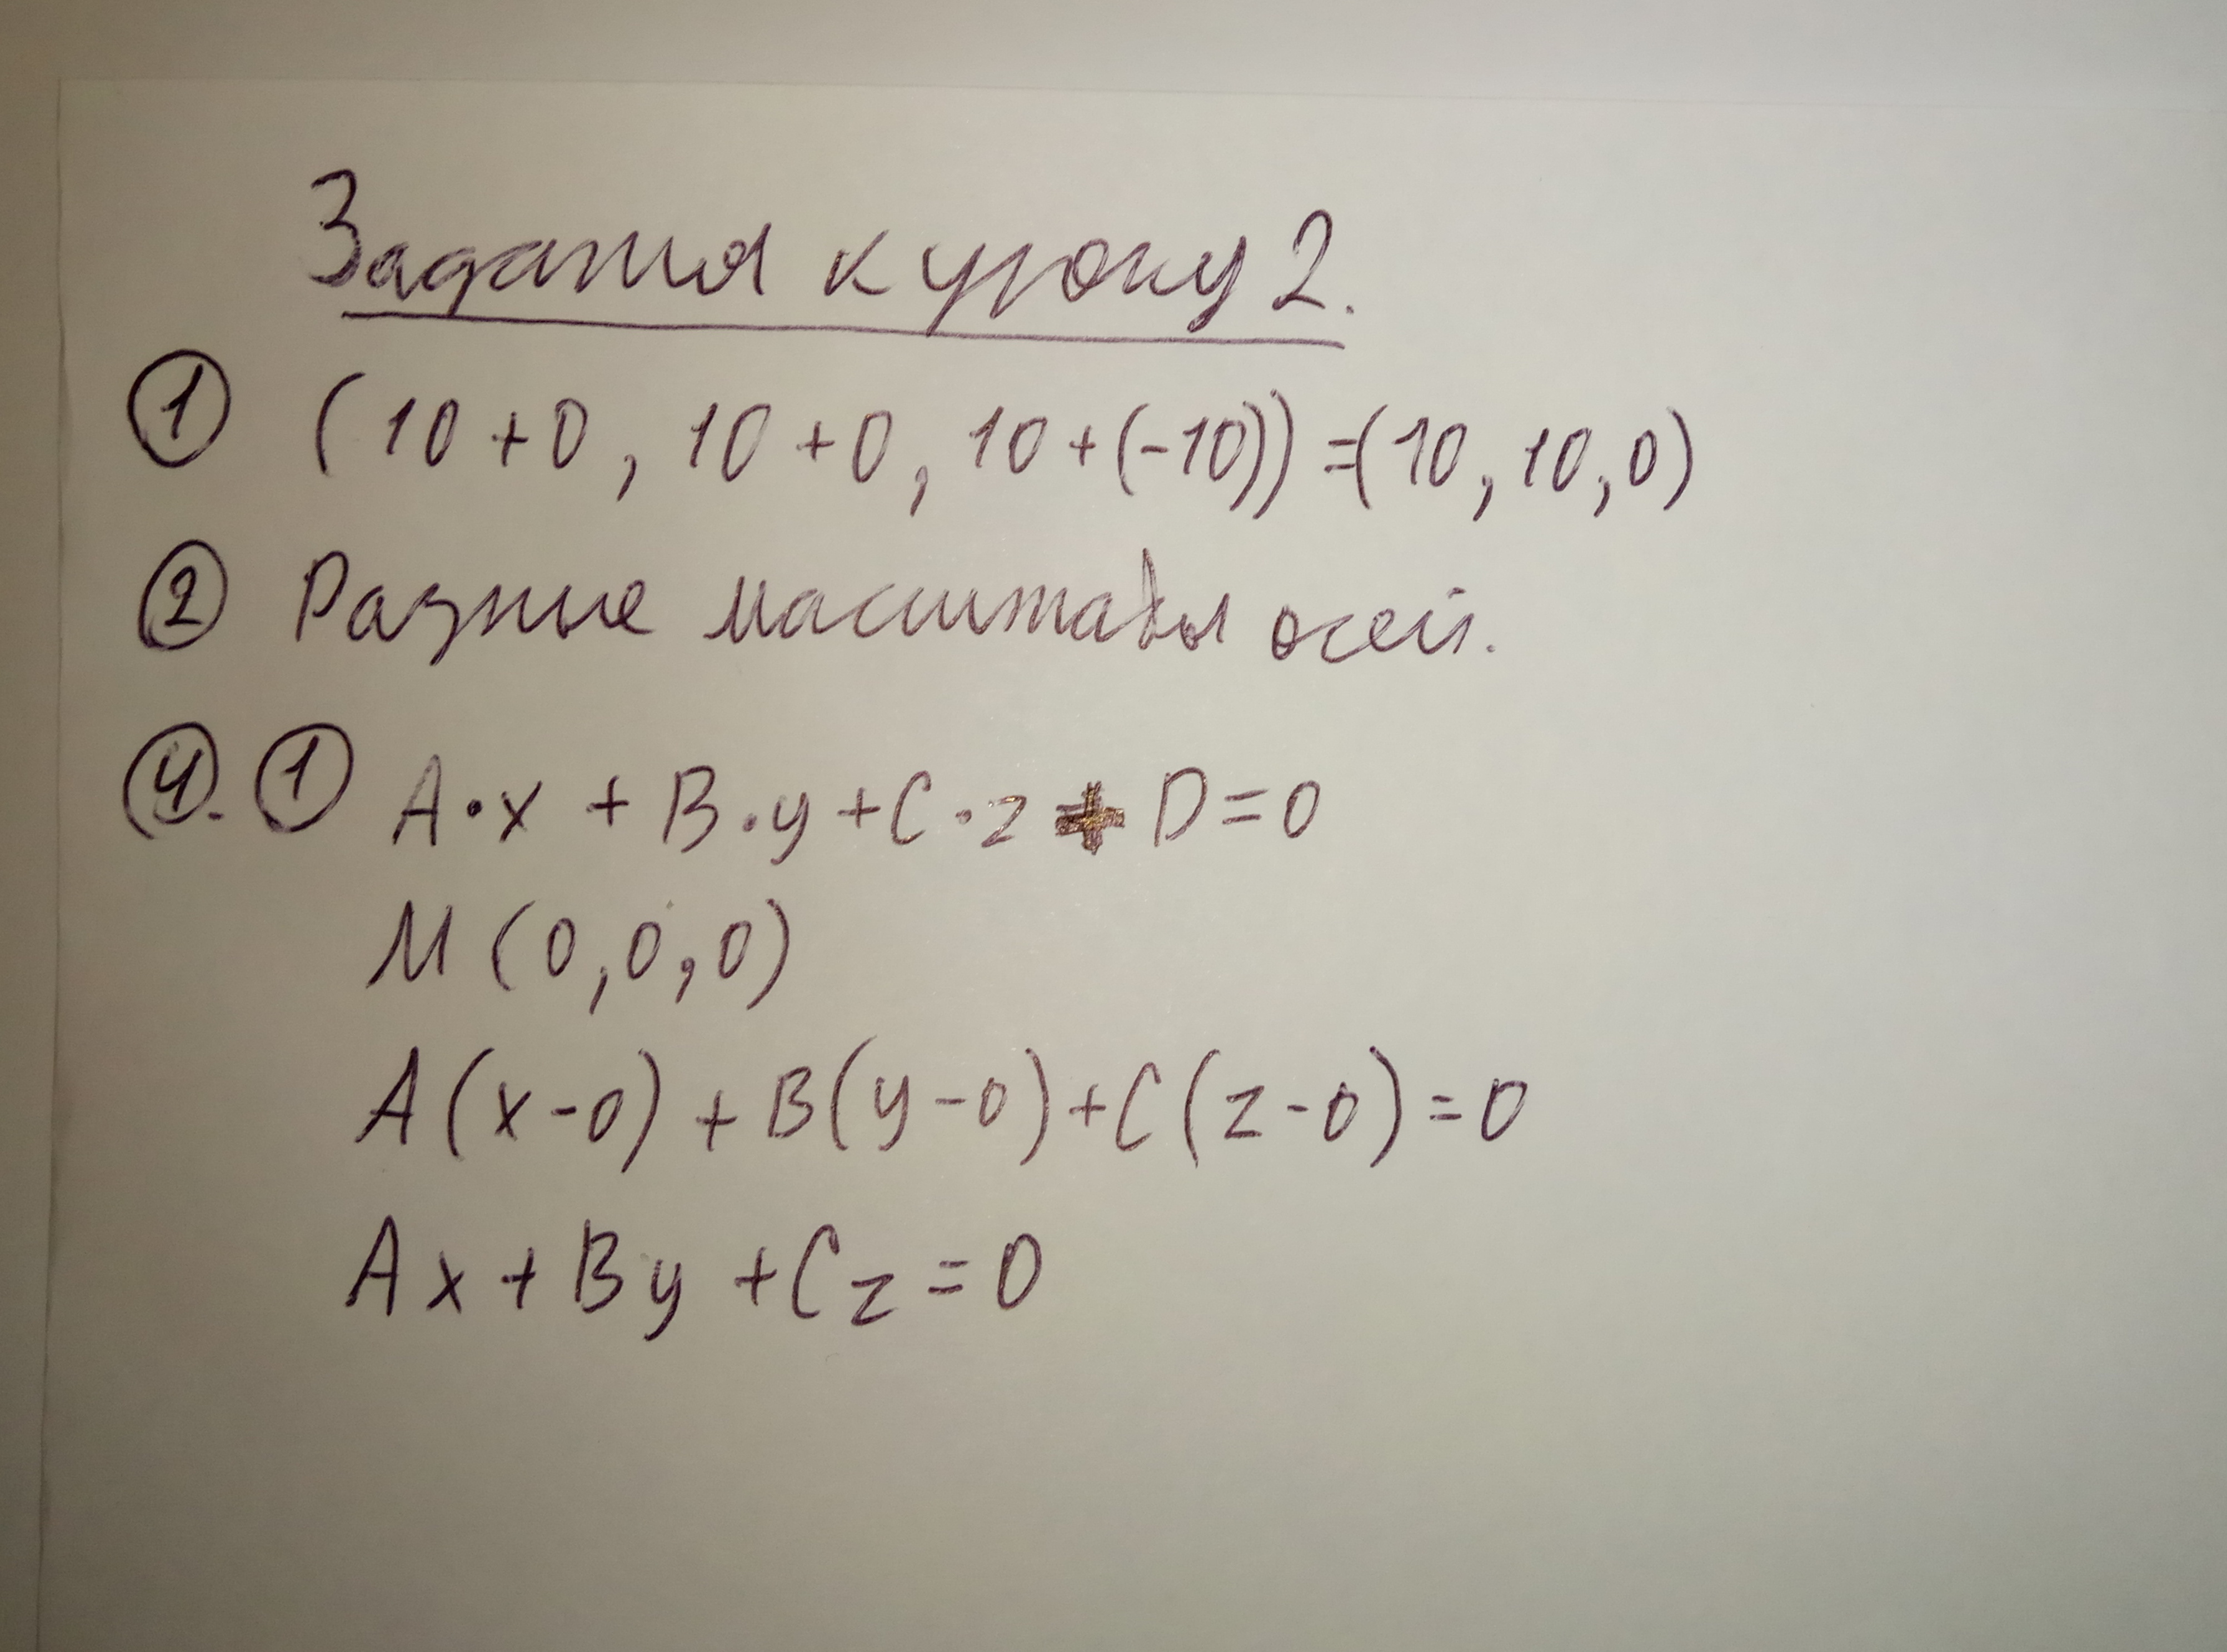 Задания к уроку 2.
① (10+0, 10+0, 10+(-10))=(10,10,0)
② Разные масштабы осей.
④. ① A·x + B·y + C·z + D=0
M (0,0,0)
A(x-0) + B(y-0)+C(z-0)=0
Ax+By+Cz=0